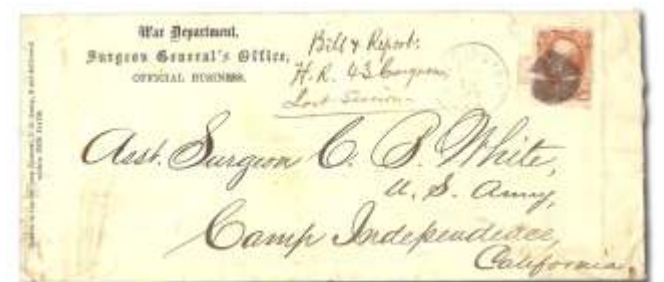 War Department,
Surgeon General's Office,
OFFICIAL BUSINESS.
Bill & Report:
H.R. 43 Congress,
Last Session
Asst. Surgeon C. B. White,
U. S. Army,
Camp Independence,
California.